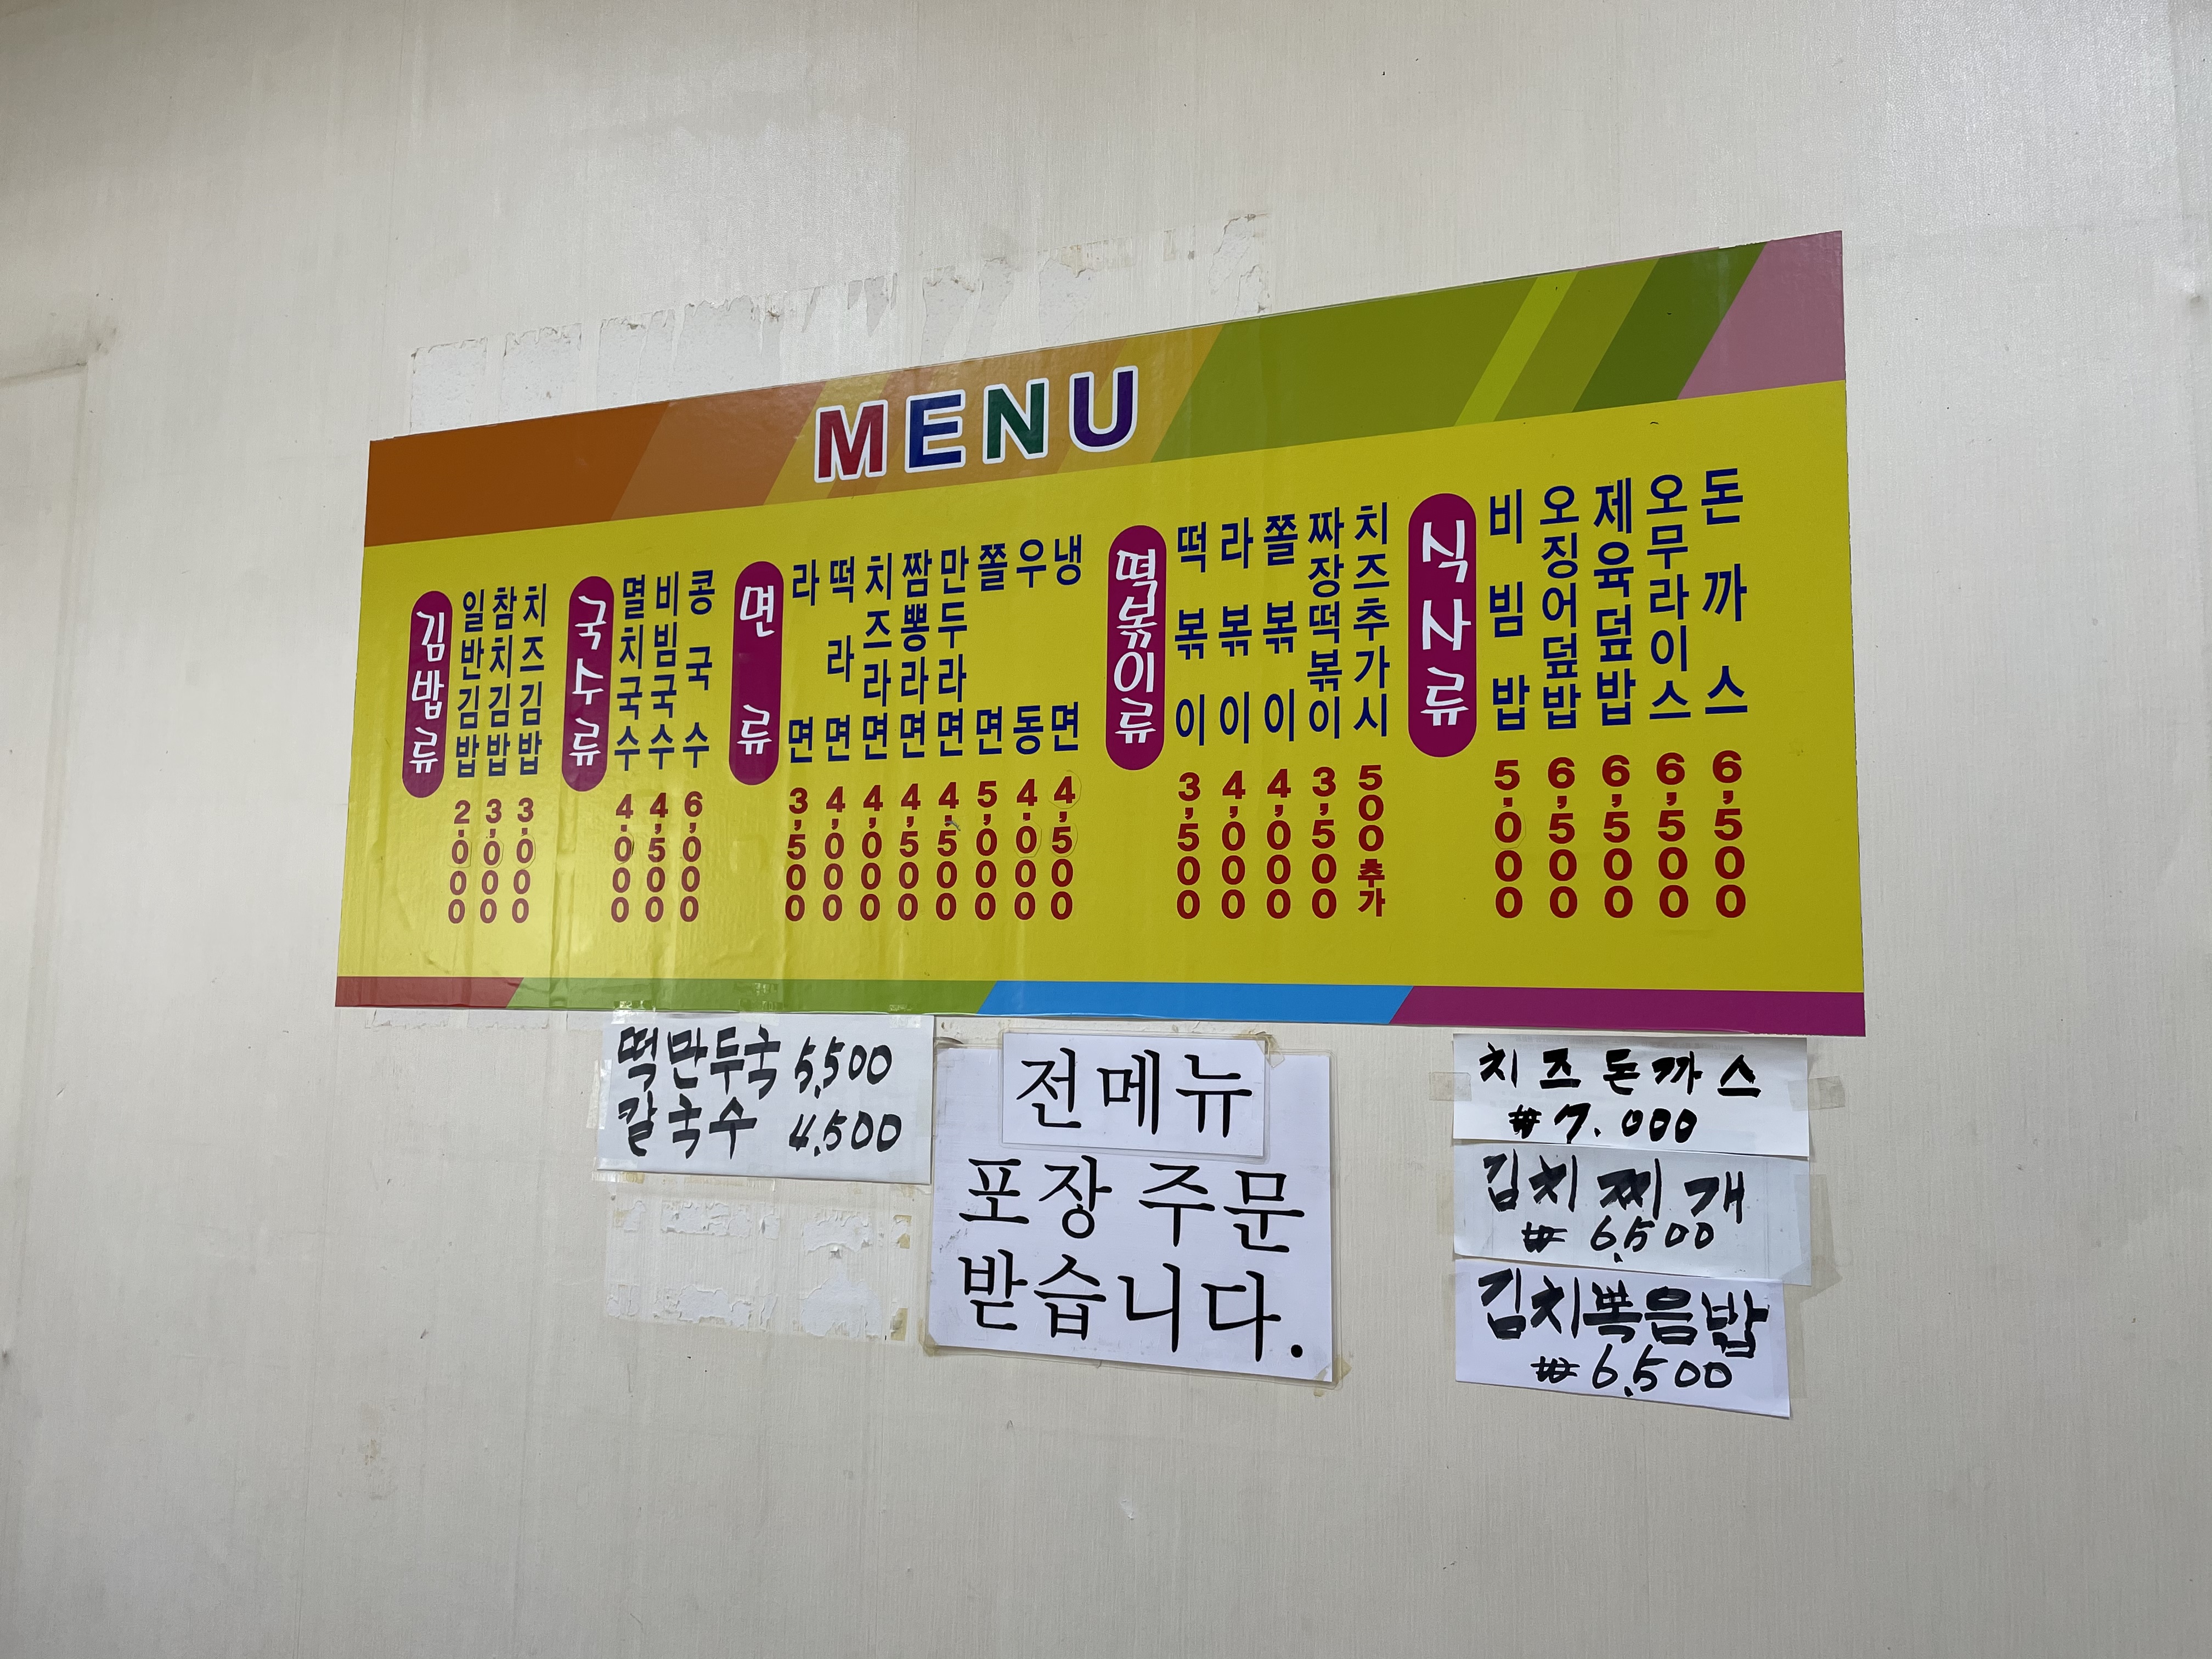 MENU
김밥류
일반김밥 2,000
참치김밥 3,000
치즈김밥 3,000
국수류
멸치국수 4,000
비빔국수 4,500
콩국수 6,000
면류
라면 3,500
떡라면 4,000
치즈라면 4,000
짬뽕라면 4,500
만두라면 4,500
쫄면 5,000
우동 4,000
냉면 4,500
떡볶이류
떡볶이 3,500
라볶이 4,000
쫄볶이 4,000
짜장떡볶이 3,500
치즈추가시 500추가
식사류
비빔밥 5,000
오징어덮밥 6,500
제육덮밥 6,500
오무라이스 6,500
돈까스 6,500
떡만두국 5,500
칼국수 4,500
전메뉴
포장 주문
받습니다.
치즈돈까스
₩7.000
김치찌개
₩6,500
김치뽁음밥
₩6,500